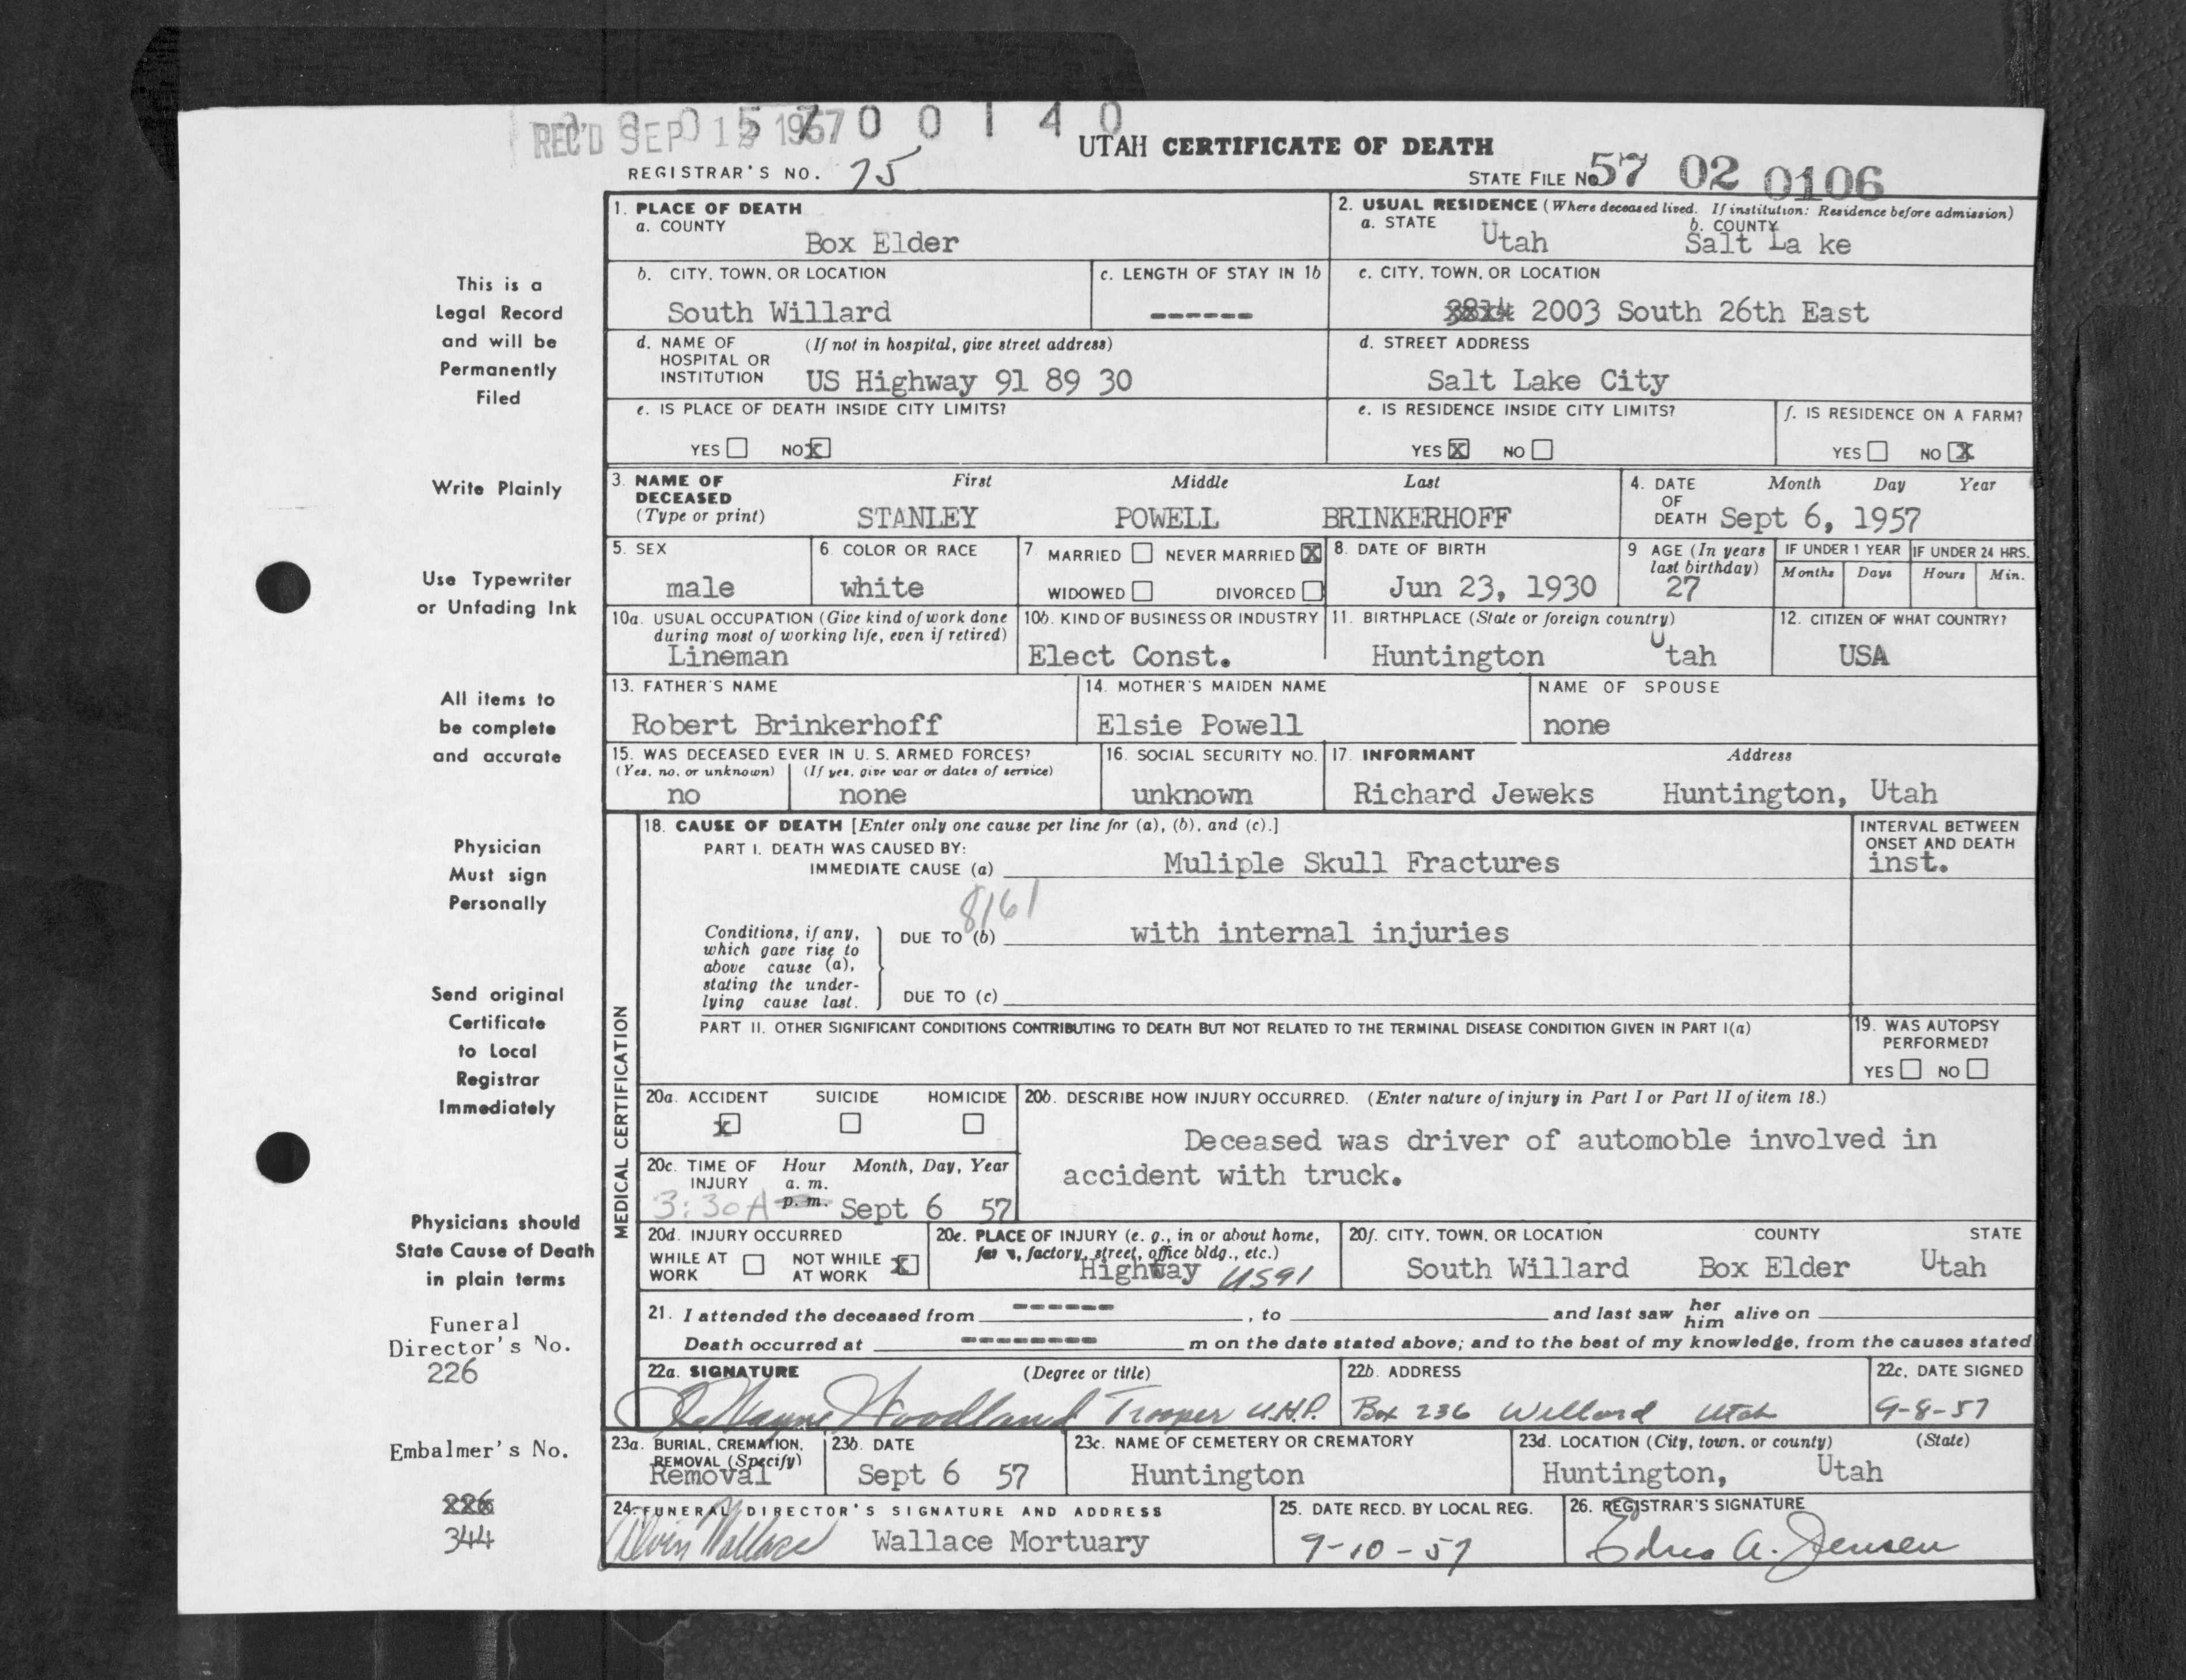 REC'D SEP 12 1957 5 7 0 0 1 4 0
UTAH CERTIFICATE OF DEATH
REGISTRAR'S NO. 75
STATE FILE No 57 02 0106
This is a
Legal Record
and will be
Permanently
Filed
Write Plainly
Use Typewriter
or Unfading Ink
All items to
be complete
and accurate
Physician
Must sign
Personally
Send original
Certificate
to Local
Registrar
Immediately
Physicians should
State Cause of Death
in plain terms
Funeral
Director's No.
226
Embalmer's No.
226
344
1. PLACE OF DEATH
a. COUNTY
Box Elder
2. USUAL RESIDENCE (Where deceased lived. If institution: Residence before admission)
a. STATE
Utah
b. COUNTY
Salt La ke
b. CITY, TOWN, OR LOCATION
South Willard
c. LENGTH OF STAY IN 1b
------
c. CITY, TOWN, OR LOCATION
2003 South 26th East
d. NAME OF (If not in hospital, give street address)
HOSPITAL OR
INSTITUTION US Highway 91 89 30
d. STREET ADDRESS
Salt Lake City
e. IS PLACE OF DEATH INSIDE CITY LIMITS?
YES NO X
e. IS RESIDENCE INSIDE CITY LIMITS?
YES X NO
f. IS RESIDENCE ON A FARM?
YES NO X
3. NAME OF DECEASED
(Type or print)
First Middle Last
STANLEY POWELL BRINKERHOFF
4. DATE OF DEATH
Month Day Year
Sept 6, 1957
5. SEX
male
6. COLOR OR RACE
white
7. MARRIED NEVER MARRIED X
WIDOWED DIVORCED
8. DATE OF BIRTH
Jun 23, 1930
9 AGE (In years
last birthday)
27
IF UNDER 1 YEAR
Months Days
IF UNDER 24 HRS.
Hours Min.
10a. USUAL OCCUPATION (Give kind of work done
during most of working life, even if retired)
Lineman
10b. KIND OF BUSINESS OR INDUSTRY
Elect Const.
11. BIRTHPLACE (State or foreign country)
Huntington Utah
12. CITIZEN OF WHAT COUNTRY?
USA
13. FATHER'S NAME
Robert Brinkerhoff
14. MOTHER'S MAIDEN NAME
Elsie Powell
NAME OF SPOUSE
none
15. WAS DECEASED EVER IN U. S. ARMED FORCES?
(Yes, no, or unknown) (If yes, give war or dates of service)
no none
16. SOCIAL SECURITY NO.
unknown
17. INFORMANT Address
Richard Jeweks Huntington, Utah
MEDICAL CERTIFICATION
18. CAUSE OF DEATH [Enter only one cause per line for (a), (b), and (c).]
PART I. DEATH WAS CAUSED BY:
IMMEDIATE CAUSE (a) Muliple Skull Fractures
INTERVAL BETWEEN
ONSET AND DEATH
inst.
8161
Conditions, if any,
which gave rise to
above cause (a),
stating the under-
lying cause last.
DUE TO (b) with internal injuries
DUE TO (c)
PART II. OTHER SIGNIFICANT CONDITIONS CONTRIBUTING TO DEATH BUT NOT RELATED TO THE TERMINAL DISEASE CONDITION GIVEN IN PART I(a)
19. WAS AUTOPSY
PERFORMED?
YES NO
20a. ACCIDENT SUICIDE HOMICIDE
X
20b. DESCRIBE HOW INJURY OCCURRED. (Enter nature of injury in Part I or Part II of item 18.)
Deceased was driver of automoble involved in
accident with truck.
20c. TIME OF INJURY
Hour Month, Day, Year
a. m.
p. m.
3:30 A Sept 6 57
20d. INJURY OCCURRED
WHILE AT WORK NOT WHILE AT WORK X
20e. PLACE OF INJURY (e. g., in or about home,
farm, factory, street, office bldg., etc.)
Highway US91
20f. CITY, TOWN, OR LOCATION COUNTY STATE
South Willard Box Elder Utah
21. I attended the deceased from ------, to and last saw her him alive on
Death occurred at -------- m on the date stated above; and to the best of my knowledge, from the causes stated
22a. SIGNATURE (Degree or title)
Wayne Woodland Trooper U.H.P.
22b. ADDRESS
Box 236 Willard Utah
22c. DATE SIGNED
9-8-57
23a. BURIAL, CREMATION,
REMOVAL (Specify)
Removal
23b. DATE
Sept 6 57
23c. NAME OF CEMETERY OR CREMATORY
Huntington
23d. LOCATION (City, town, or county) (State)
Huntington, Utah
24. FUNERAL DIRECTOR'S SIGNATURE AND ADDRESS
Alvin Wallace Wallace Mortuary
25. DATE RECD. BY LOCAL REG.
9-10-57
26. REGISTRAR'S SIGNATURE
Edna A. Jensen